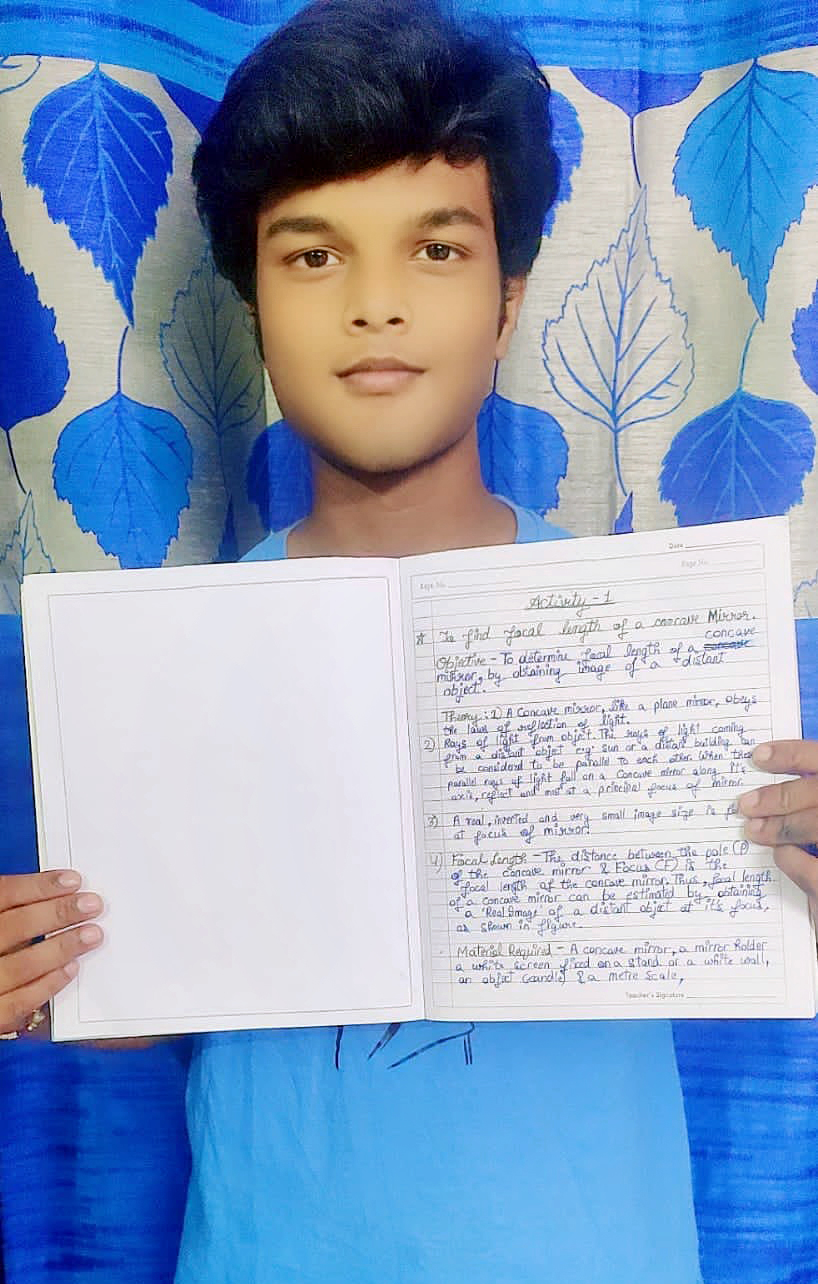 Date
Page No.
Page No.
Activity - 1
To find focal length of a concave Mirror.
concave
Objective - To determine focal length of a concave
mirror, by obtaining image of a distant
object.
Theory : 1) A Concave mirror, like a plane mirror, obeys
the laws of reflection of light.
2) Rays of light from object. The rays of light coming
from a distant object e.g. sun or a distant building can
be considerd to be parallel to each other. When these
parallel rays of light fall on a Concave mirror along it's
axis, reflect and meet at a principal focus of mirror.
3) A real, inverted and very small image size is
at focus of mirror.
4) Focal Length - The distance between the pole (P)
of the concave mirror & Focus (F) is the
focal length of the concave mirror. Thus, focal length
of a concave mirror can be estimated by obtaining
a 'Real Image' of a distant object at it's focus,
as shown in figure.
Material Required - A concave mirror, a mirror holder
a white screen fixed on a stand or a white wall,
an object (candle) & a metre scale,
Teacher's Signature